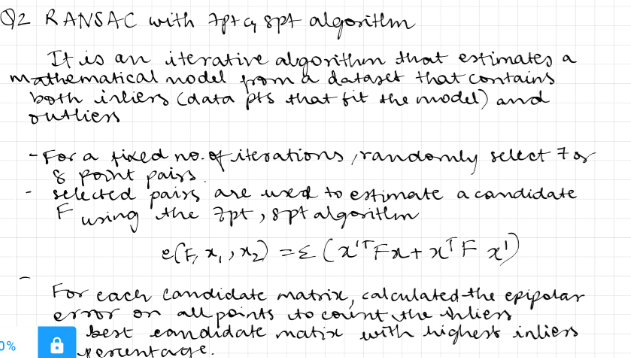 Q2 RANSAC with 7pt & 8pt algorithm
It is an iterative algorithm that estimates a
mathematical model from a dataset that contains
both inliers (data pts that fit the model) and
outliers
- For a fixed no. of iterations, randomly select 7 or
8 point pairs.
- selected pairs are used to estimate a candidate
F using the 7pt, 8pt algorithm
e(F, x₁, x₂) = Σ (x'ᵀFx + xᵀF x')
-
For each candidate matrix, calculated the epipolar
error on all points to count the inliers
best candidate matix with highest inliers
0%
percentage.